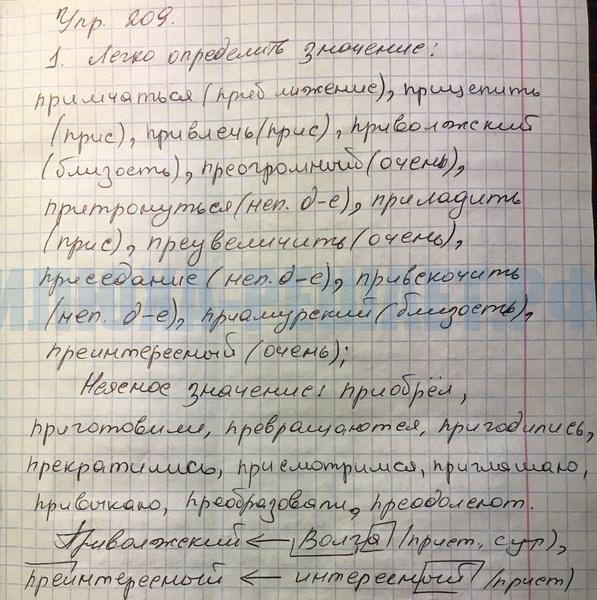 Упр. 209.
1. Легко определить значение:
примчаться (приближение), прицепить
(прис), привлечь (прис), приволжский
(близость), преогромный (очень),
притронуться (неп. д-е), приладить
(прис), преувеличить (очень),
приседание (неп. д-е), привскочить
(неп. д-е), приамурский (близость),
преинтересный (очень);
Неясное значение: приобрёл,
приготовили, превращаются, пригодились,
прекратились, присмотримся, приглашаю,
привыкаю, преобразовали, преодолеют.
Приволжский ← Волга (прист, суф),
преинтересный ← интересный (прист)